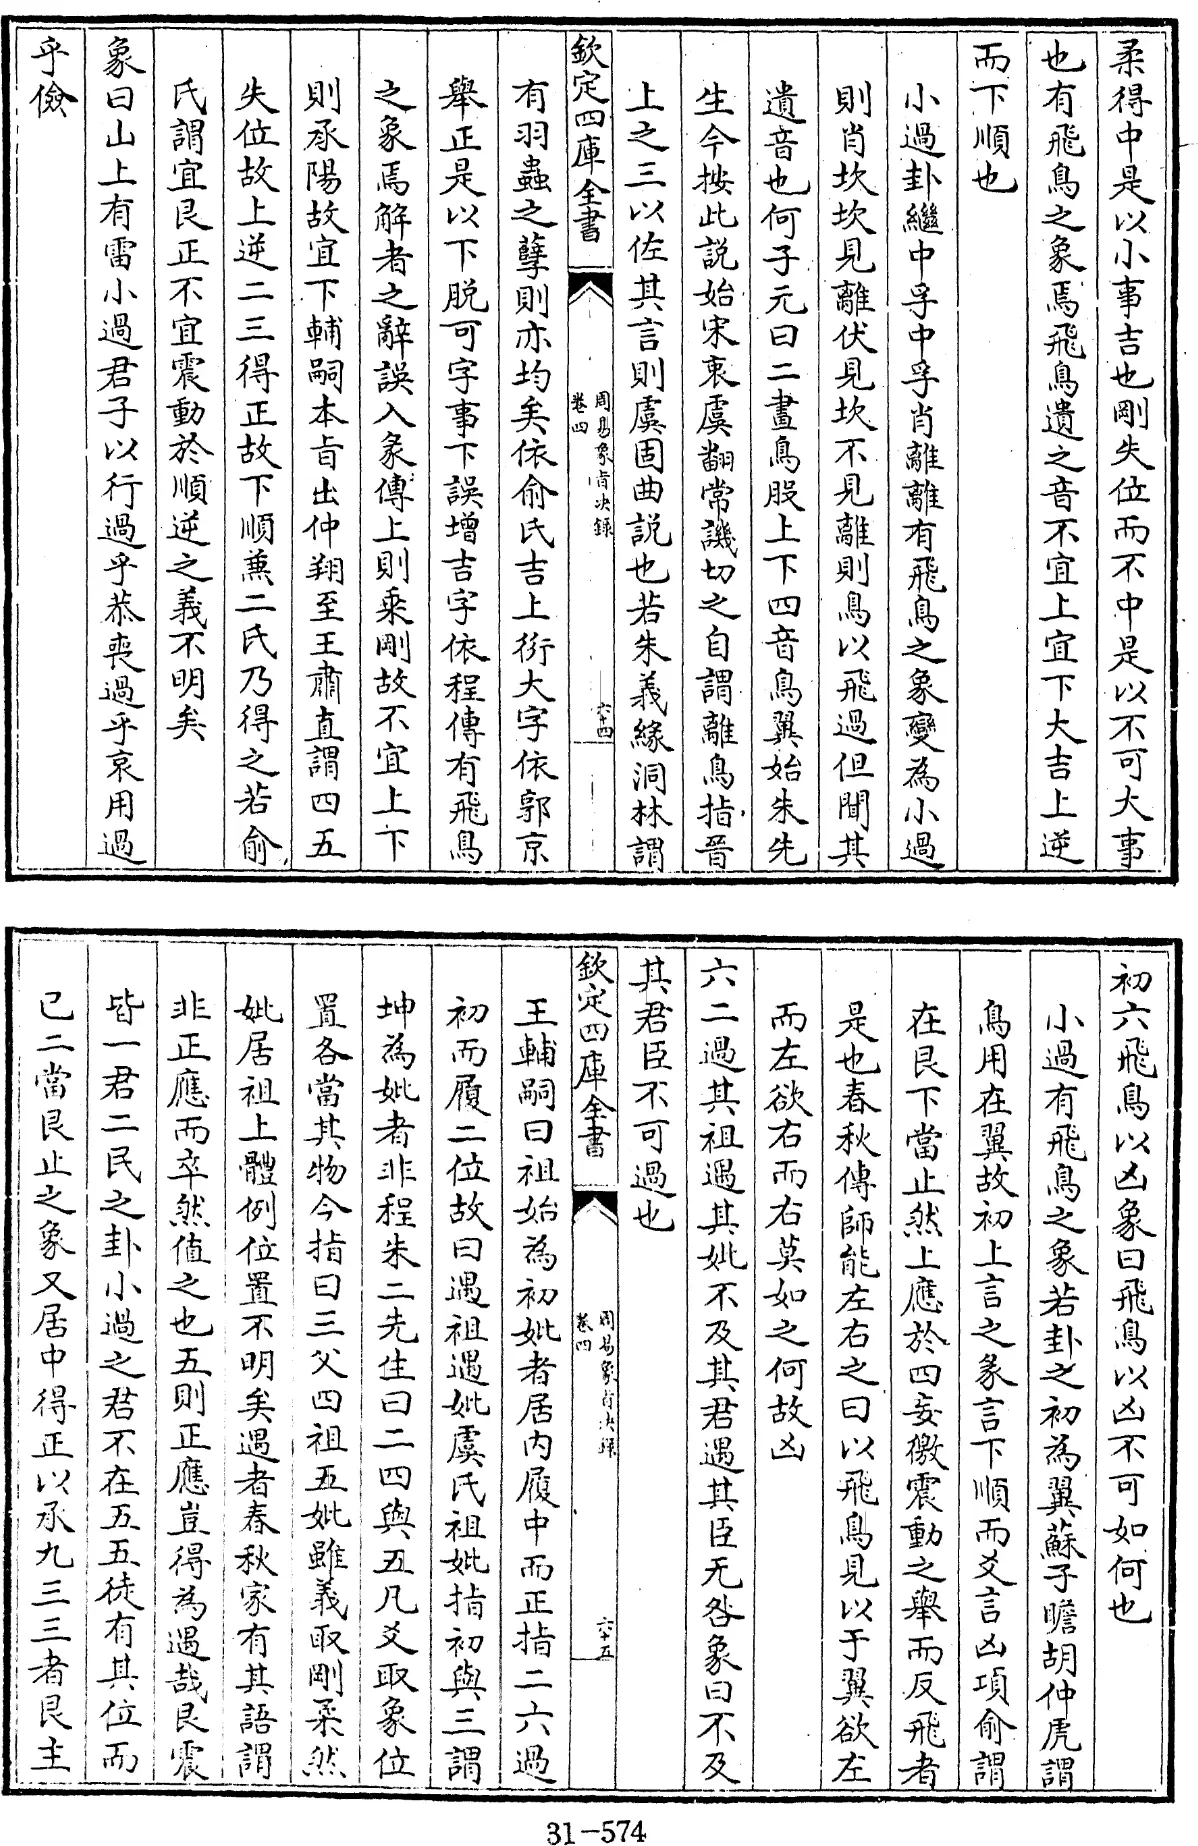 柔得中是以小事吉也剛失位而不中是以不可大事
也有飛鳥之象焉飛鳥遺之音不宜上宜下大吉上逆
而下順也
小過卦繼中孚中孚肖離離有飛鳥之象變為小過
則肖坎坎見離伏見坎不見離則鳥以飛過但聞其
遺音也何子元曰二畫鳥股上下四音鳥翼始朱先
生今按此説始宋衷虞翻常譏切之自謂離鳥指晉
上之三以佐其言則虞固曲説也若朱義緣洞林謂
欽定四庫全書
周易象旨决録
卷四
六十四
有羽蟲之孽則亦均矣依俞氏吉上衍大字依郭京
舉正是以下脱可字事下誤增吉字依程傳有飛鳥
之象焉解者之辭誤入彖傳上則乘剛故不宜上下
則承陽故宜下輔嗣本旨出仲翔至王肅直謂四五
失位故上逆二三得正故下順兼二氏乃得之若俞
氏謂宜艮正不宜震動於順逆之義不明矣
象曰山上有雷小過君子以行過乎恭喪過乎哀用過
乎儉
初六飛鳥以凶象曰飛鳥以凶不可如何也
小過有飛鳥之象若卦之初為翼蘇子瞻胡仲虎謂
鳥用在翼故初上言之彖言下順而爻言凶項俞謂
在艮下當止然上應於四妄徼震動之舉而反飛者
是也春秋傳師能左右之曰以飛鳥見以于翼欲左
而左欲右而右莫如之何故凶
六二過其祖遇其妣不及其君遇其臣无咎象曰不及
其君臣不可過也
欽定四庫全書
周易象旨决録
卷四
六十五
王輔嗣曰祖始為初妣者居内履中而正指二六過
初而履二位故曰過祖遇妣虞氏祖妣指初與三謂
坤為妣者非程朱二先生曰二四與五凡爻取象位
置各當其物今指曰三父四祖五妣雖義取剛柔然
妣居祖上體例位置不明矣遇者春秋家有其語謂
非正應而卒然值之也五則正應豈得為遇哉艮震
皆一君二民之卦小過之君不在五五徒有其位而
已二當艮止之象又居中得正以承九三三者艮主
31-574